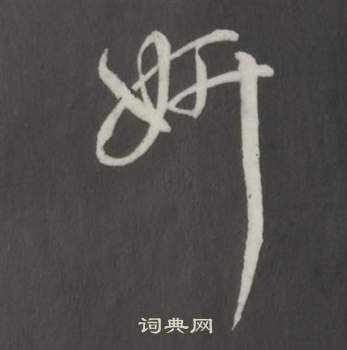 妍
词典网